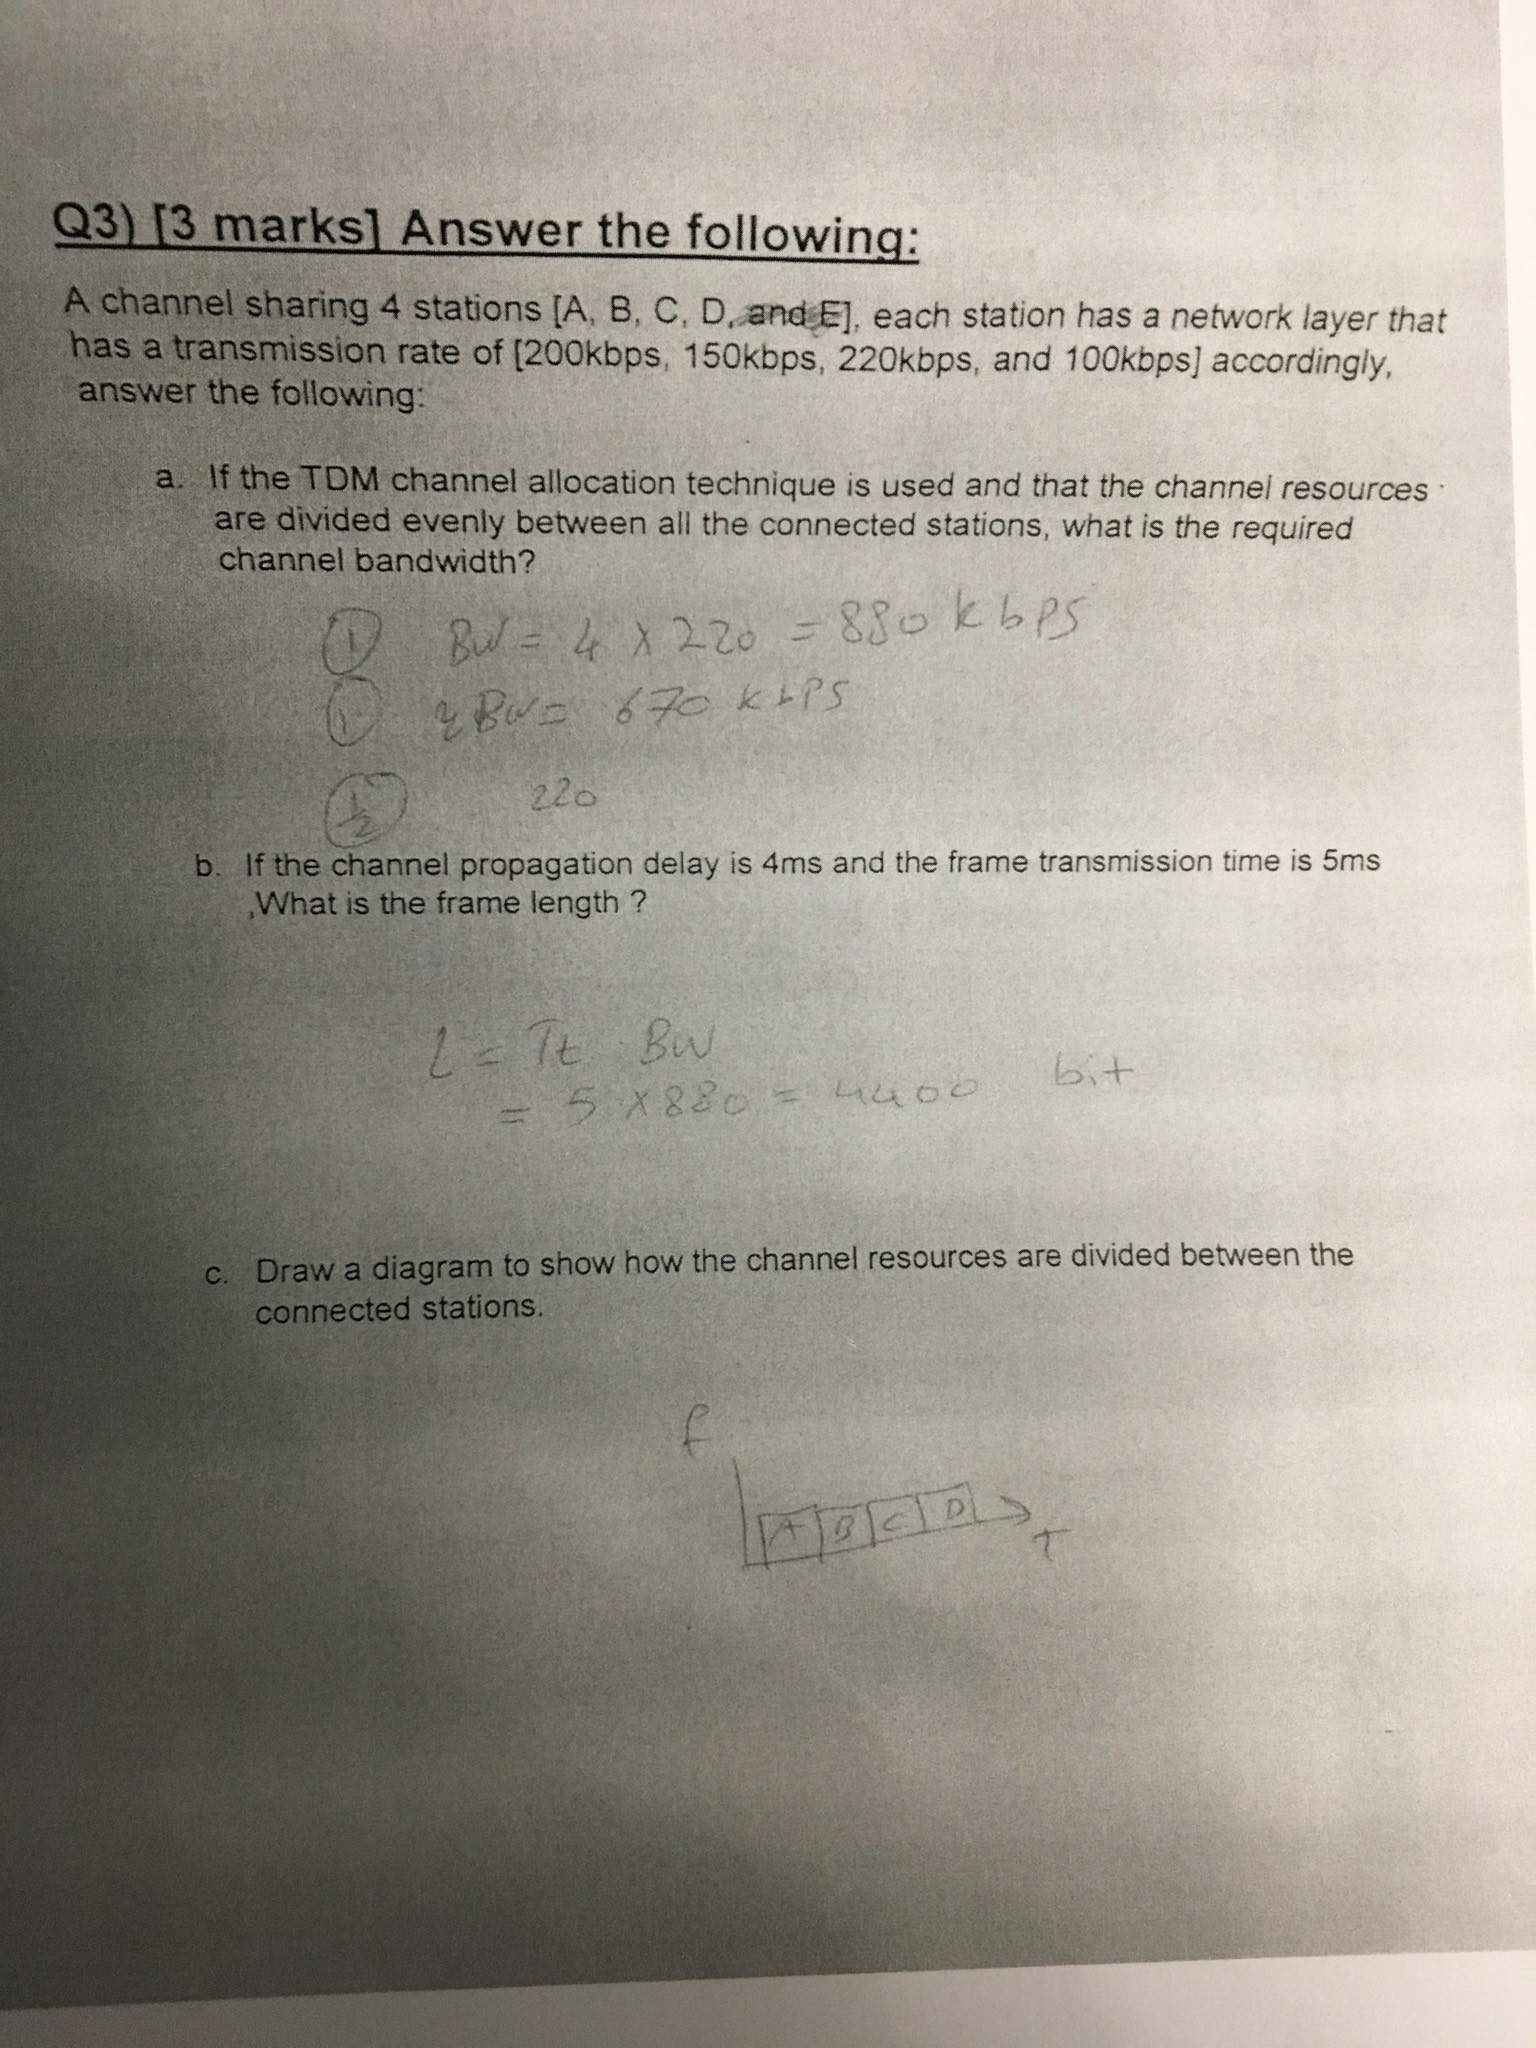 Q3) [3 marks] Answer the following:
A channel sharing 4 stations [A, B, C, D, and E], each station has a network layer that
has a transmission rate of [200kbps, 150kbps, 220kbps, and 100kbps] accordingly,
answer the following:
a. If the TDM channel allocation technique is used and that the channel resources
are divided evenly between all the connected stations, what is the required
channel bandwidth?
1 BW = 4 x 220 = 880 k bps
1 BW = 670 k bps
1/2 220
b. If the channel propagation delay is 4ms and the frame transmission time is 5ms
,What is the frame length ?
L = Tt BW
= 5 x 880 = 4400 bit
c. Draw a diagram to show how the channel resources are divided between the
connected stations.
f
A B C D
T